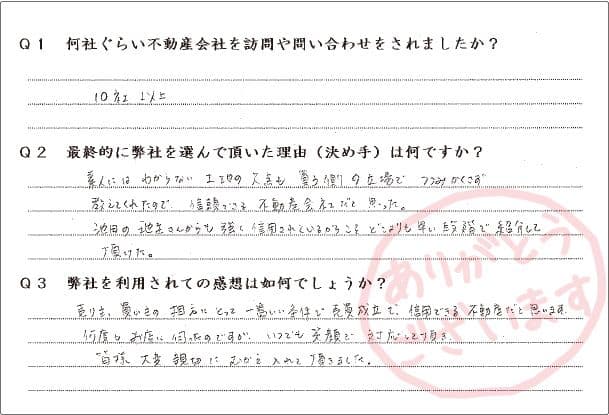 Q1 何社ぐらい不動産会社を訪問や問い合わせをされましたか？
10社 以上
Q2 最終的に弊社を選んで頂いた理由（決め手）は何ですか？
素人には わからない 土地の 欠点も 買う側の立場で つつみかくさず
教えてくれたので、信頼できる 不動産会社だと思った。
池田の 地主さんからも 強く 信用されているからこそ どこよりも 早い 段階で 紹介して
頂けた。
Q3 弊社を利用されての感想は如何でしょうか？
売り主、買い主の 相互にとって 一番いい条件で 売買成立で、信用できる 不動産だと思います。
何度も お店に 伺ったのですが、いつでも 笑顔で 対応して頂き、
皆様 大変 親切に むかえ入れて 頂きました。
ありがとう
ございます